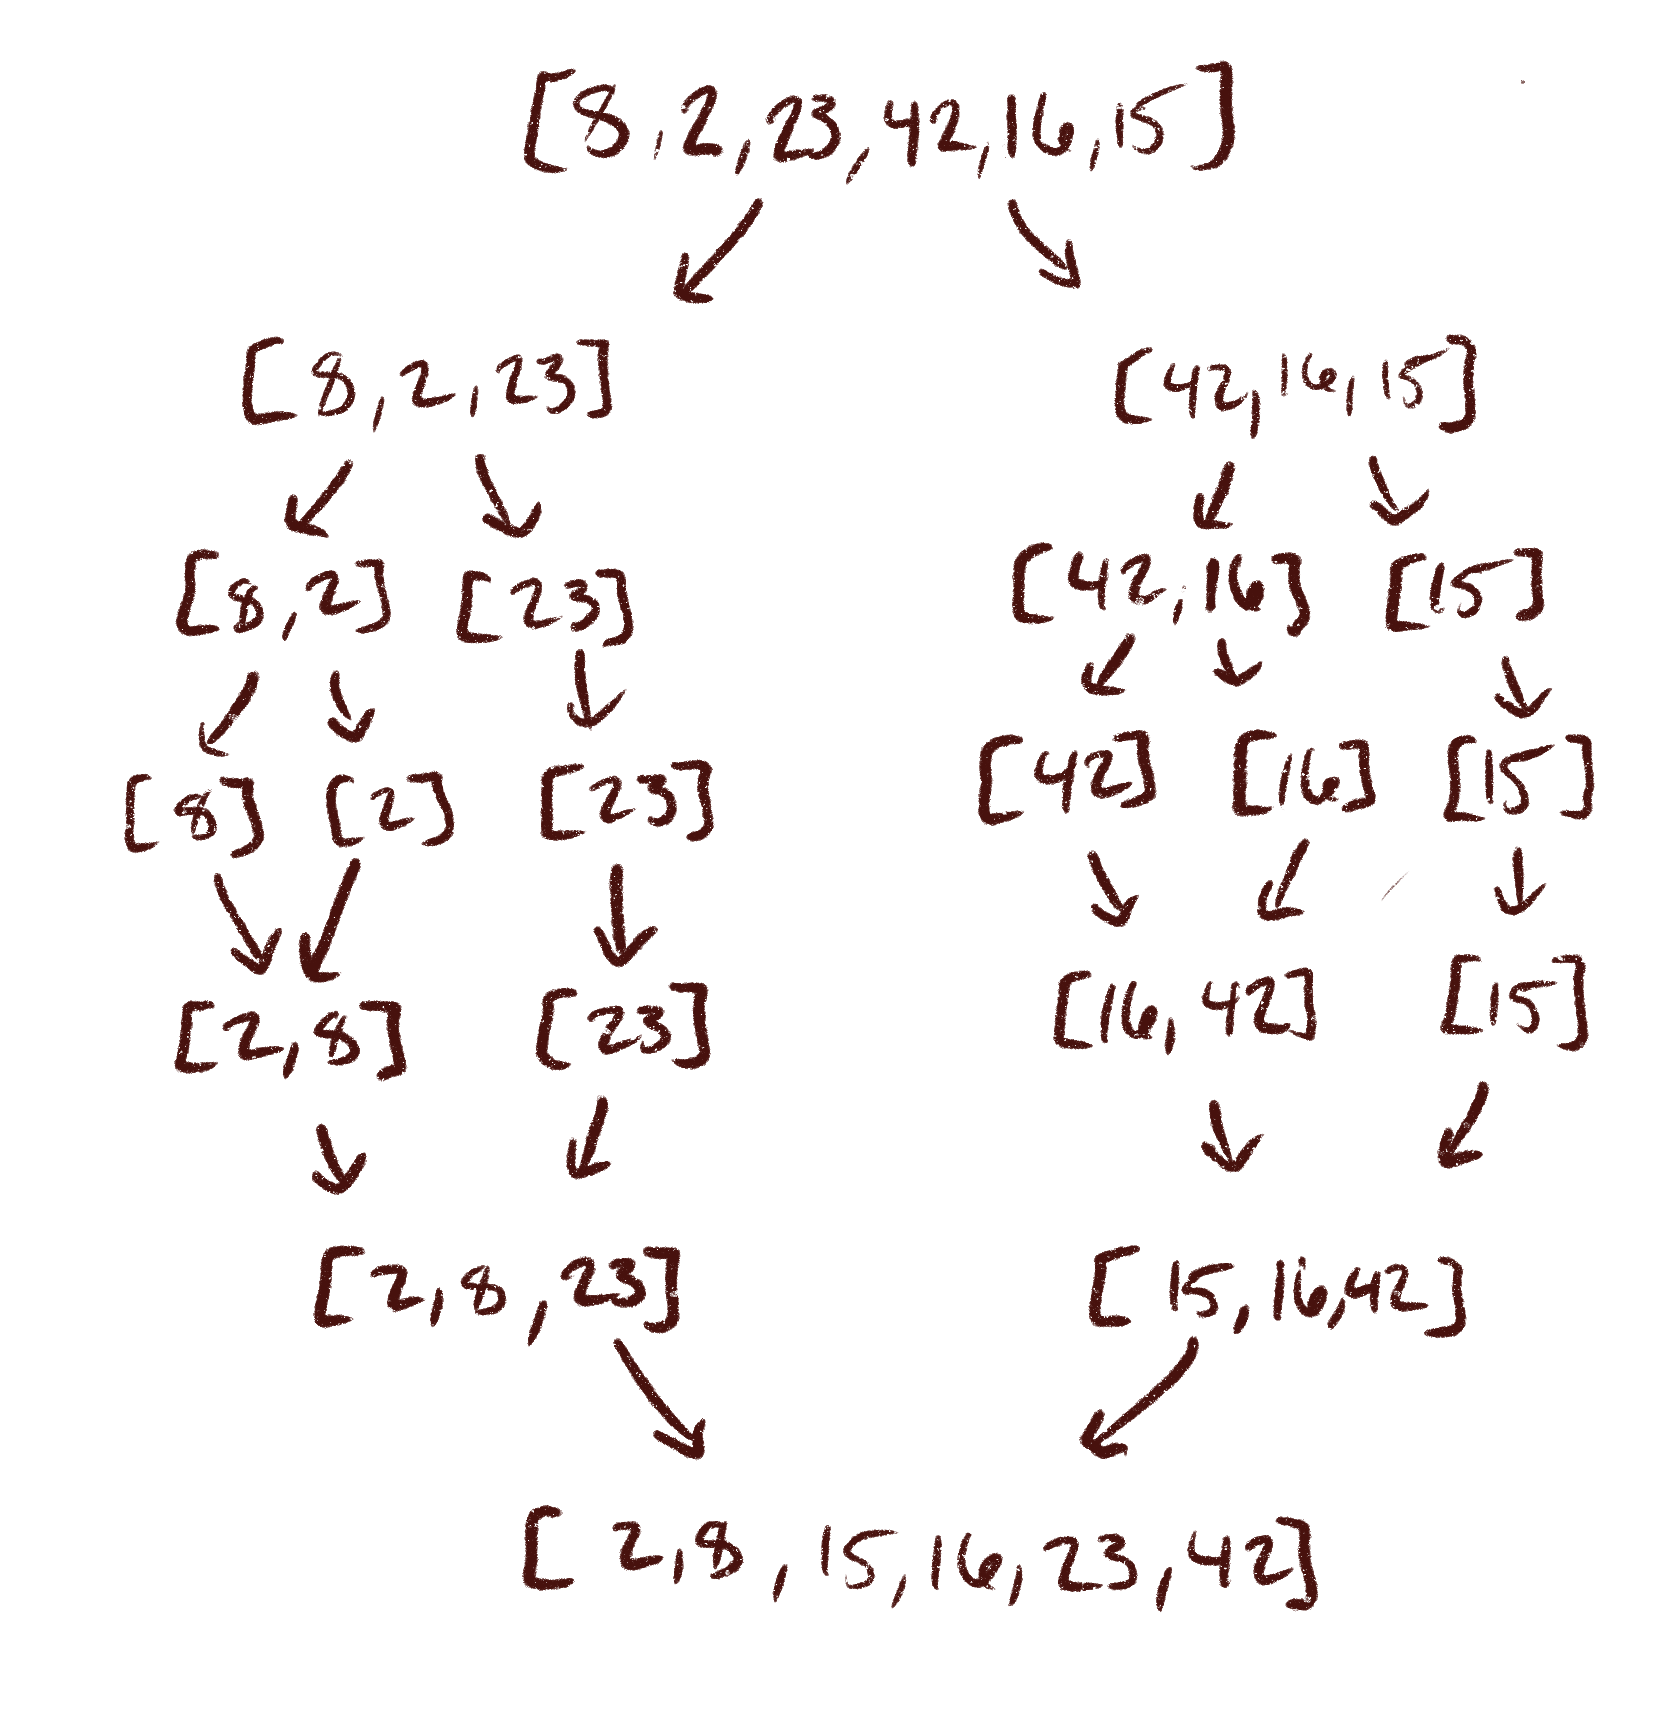 [8, 2, 23, 42, 16, 15]
[8, 2, 23] [42, 16, 15]
[8, 2] [23] [42, 16] [15]
[8] [2] [23] [42] [16] [15]
[2, 8] [23] [16, 42] [15]
[2, 8, 23] [15, 16, 42]
[2, 8, 15, 16, 23, 42]